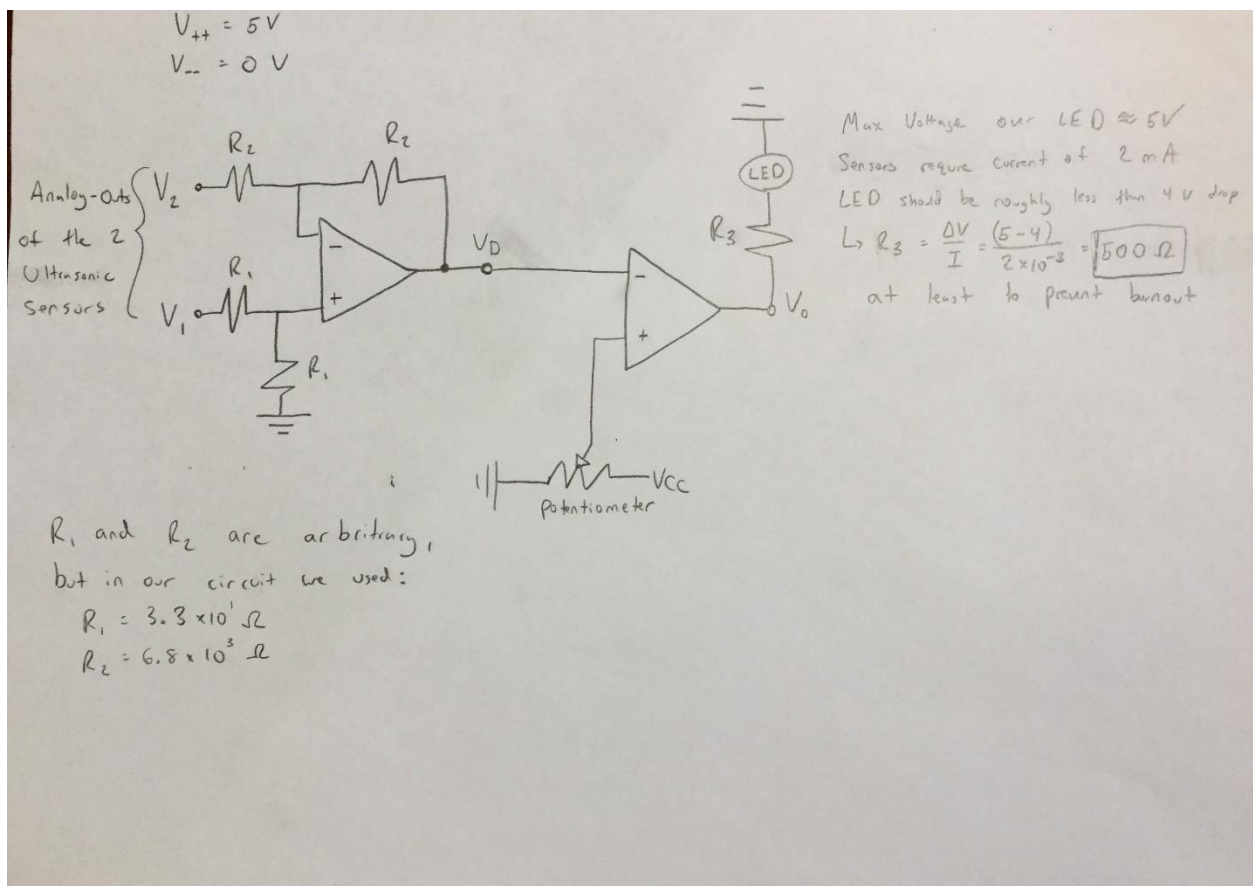 V++ = 5V
V-- = 0 V
Analog-Outs
of the 2
Ultrasonic
Sensors
V2
R2
R2
V1
R1
R1
-
+
VD
-
+
V0
R3
LED
VCC
Potentiometer
Max Voltage over LED ≈ 5V
Sensors require current of 2 mA
LED should be roughly less than 4 v drop
↳ R3 = ΔV/I = (5-4)/2×10^-3 = 500 Ω
at least to prevent burnout
R1 and R2 are arbritrary,
but in our circuit we used:
R1 = 3.3 ×10^1 Ω
R2 = 6.8 × 10^3 Ω